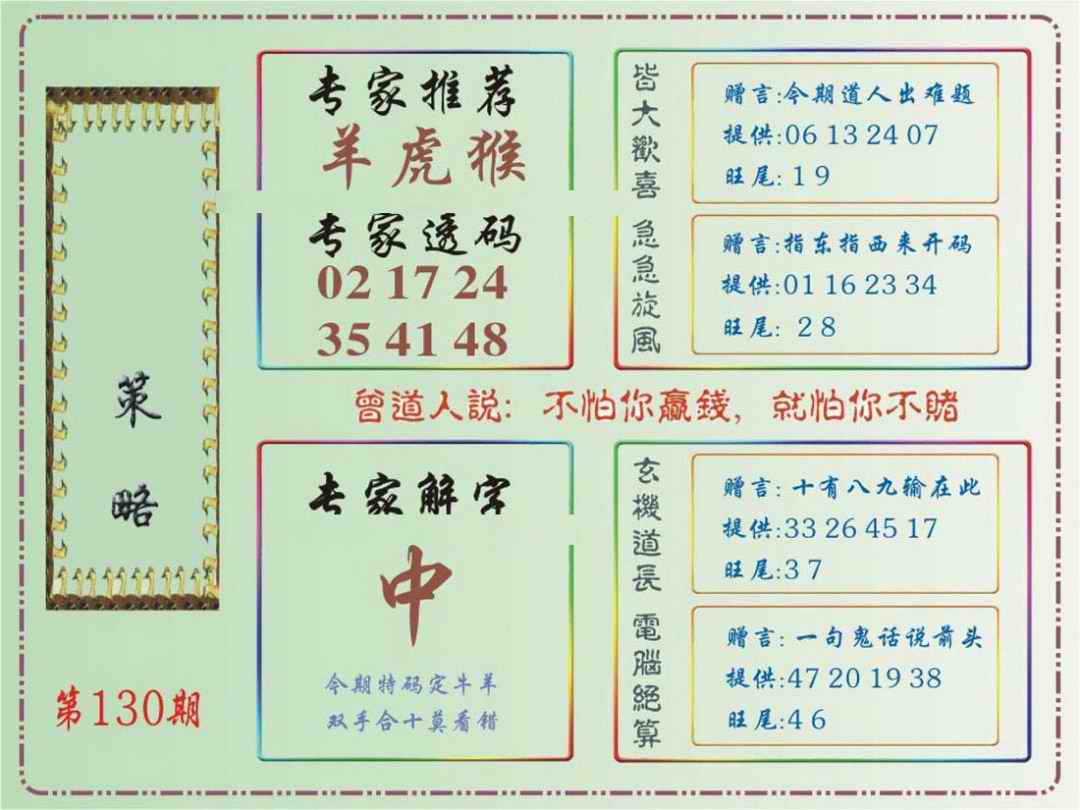 策略
第130期
专家推荐
羊虎猴
专家透码
02 17 24
35 41 48
皆大歡喜
赠言:今期道人出难题
提供:06 13 24 07
旺尾: 1 9
急急旋風
赠言:指东指西来开码
提供:01 16 23 34
旺尾: 2 8
曾道人説: 不怕你赢錢, 就怕你不賭
专家解字
中
今期特码定牛羊
双手合十莫看错
玄機道長
赠言: 十有八九输在此
提供:33 26 45 17
旺尾:3 7
電腦絕算
赠言: 一句鬼话说前头
提供:47 20 19 38
旺尾:4 6